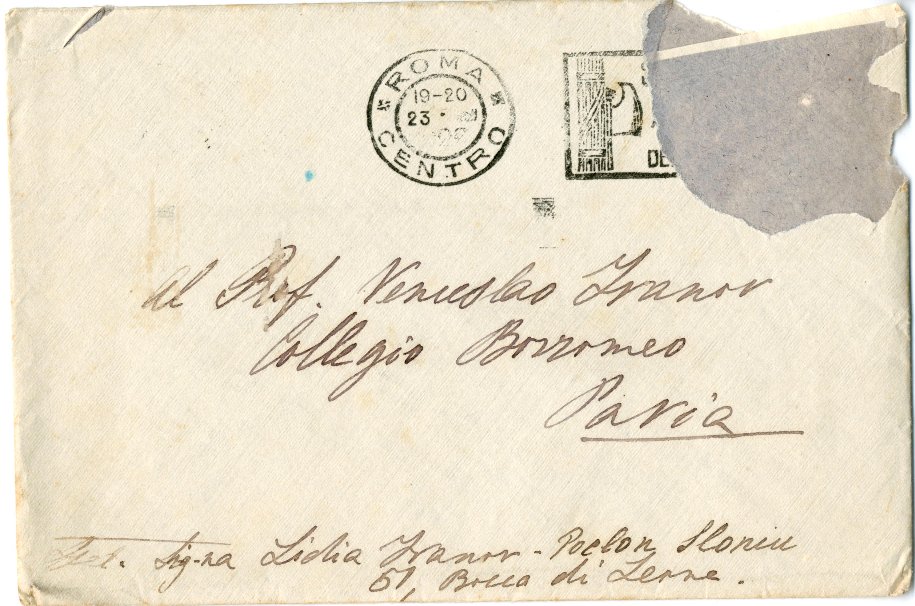 ROMA
19-20
23
CENTRO
DE
Al Prof. Venceslao Ivanov
Collegio Borromeo
Pavia
Sig-na Lidia Ivanov -
51, Bocca di Leone.